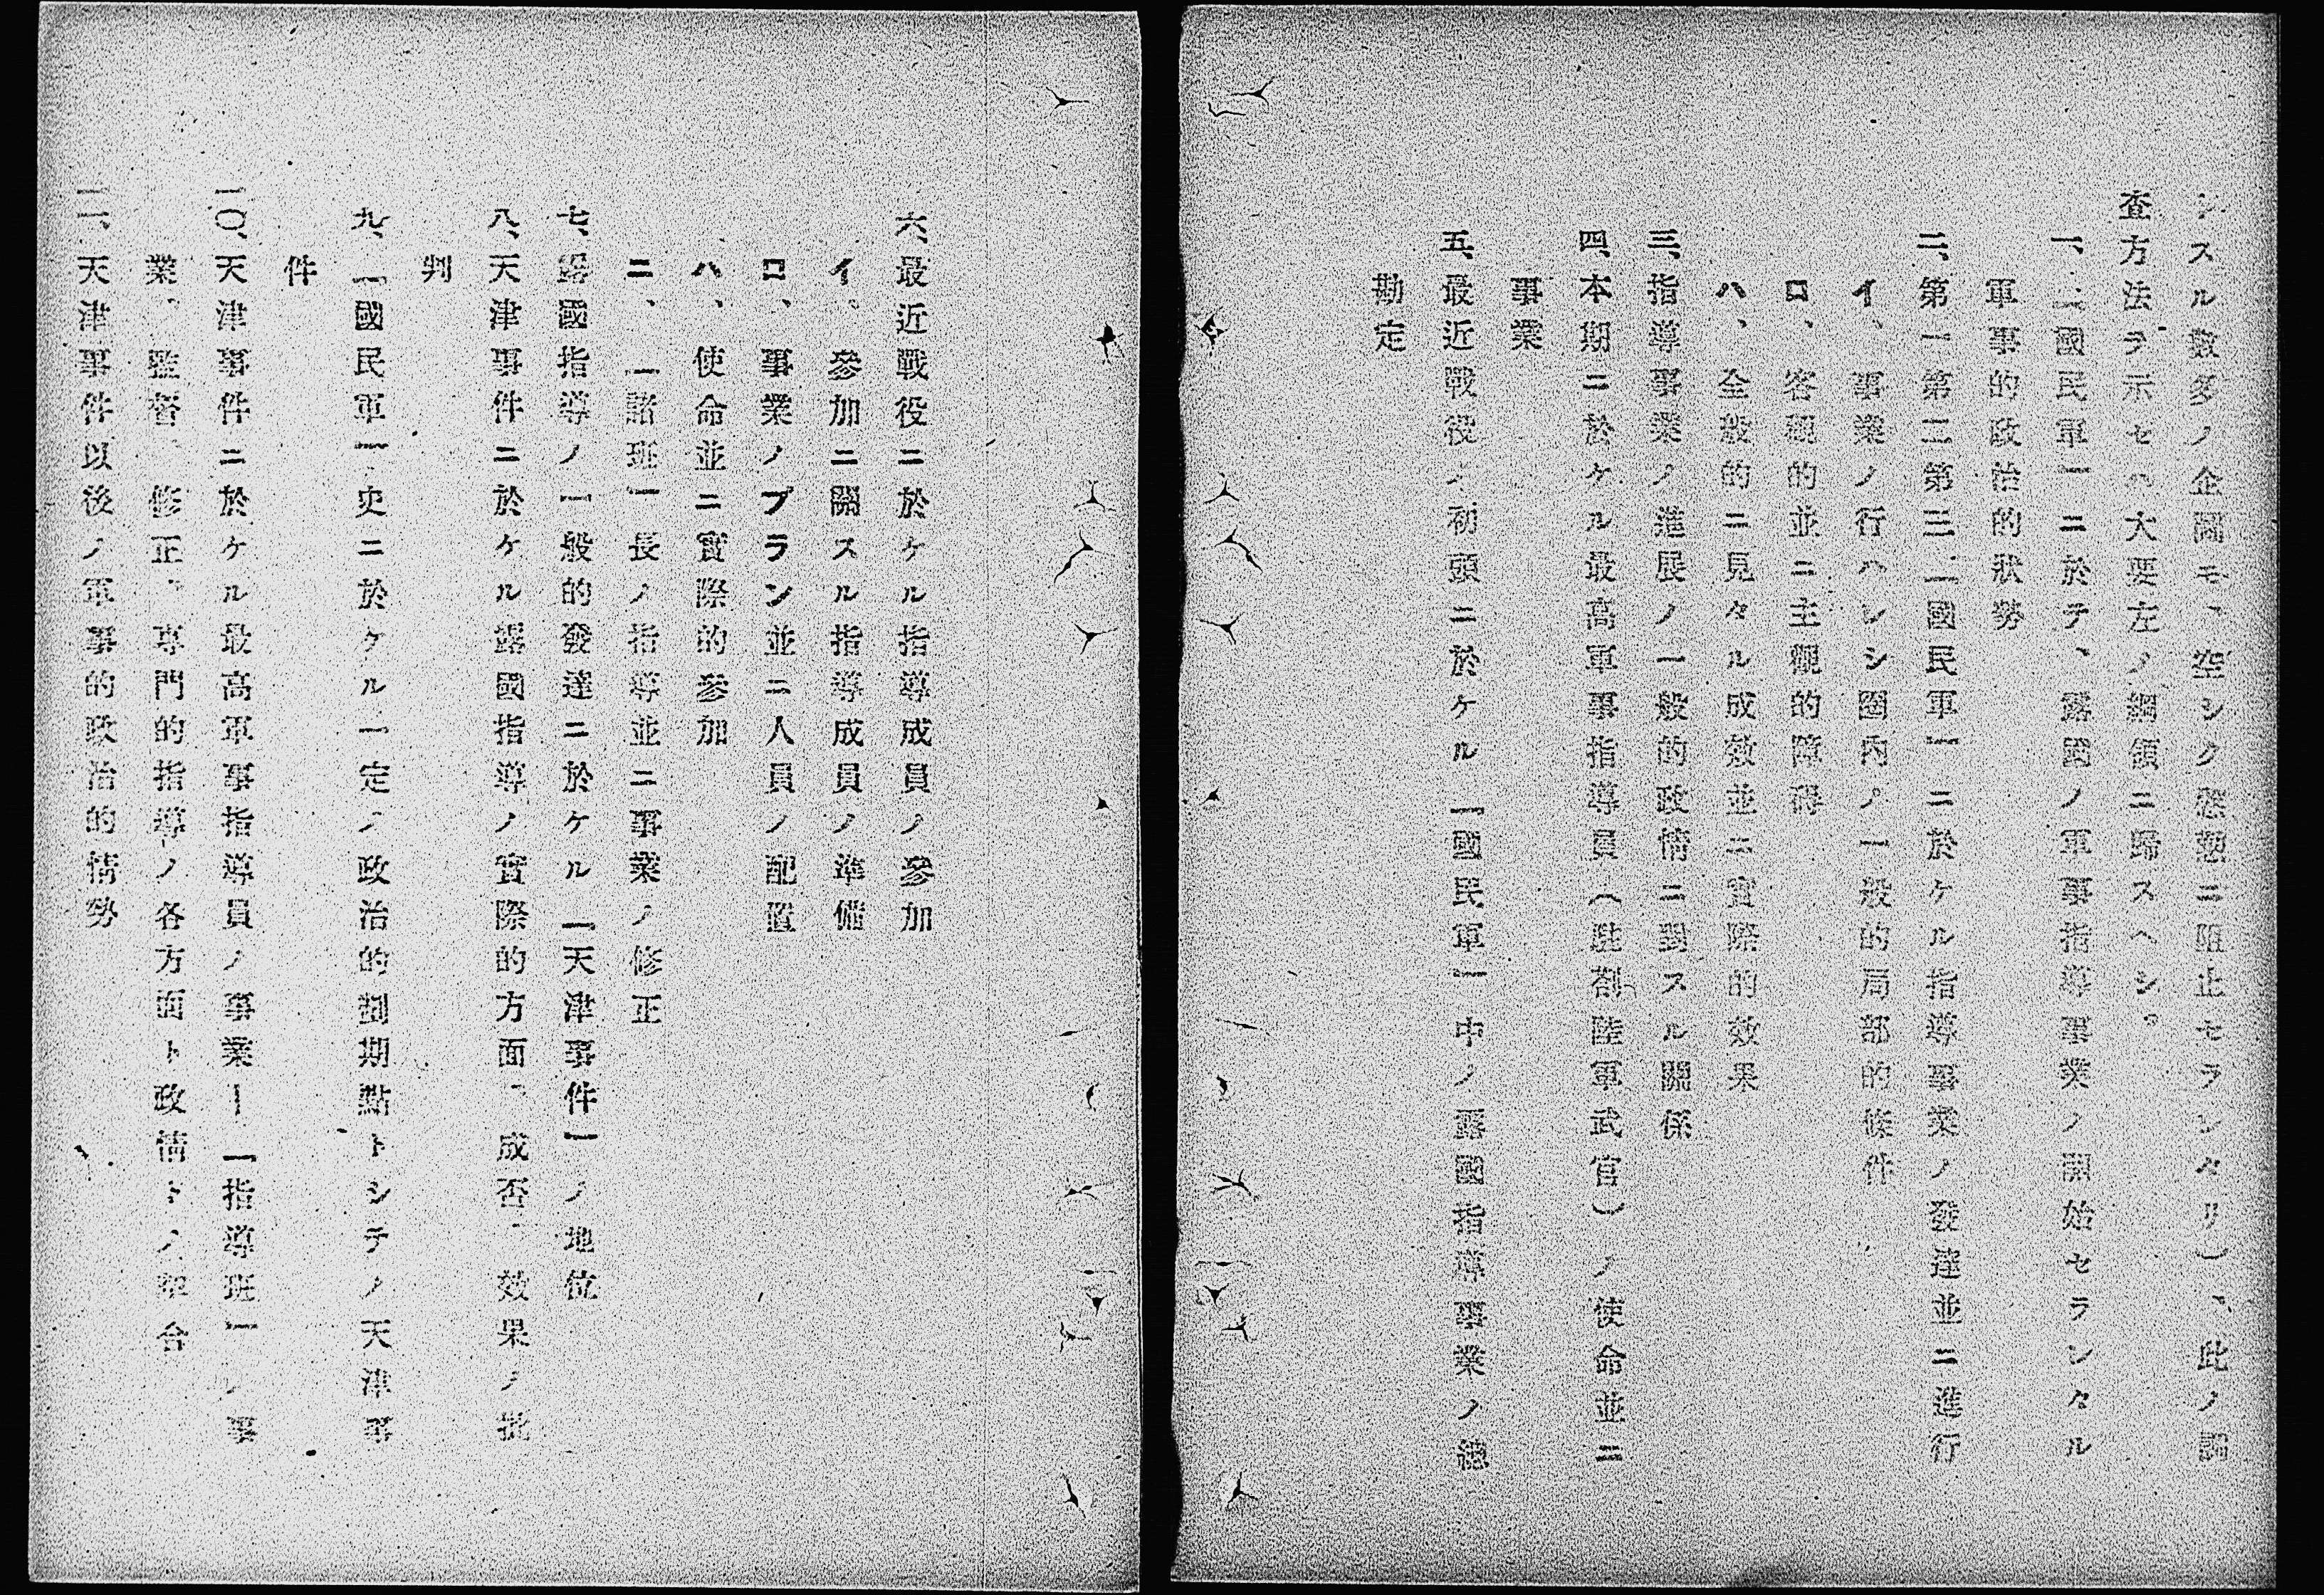 ンスル數多ノ企圖モ、空シク慫慂ニ阻止セラレタリ)、此ノ調
査方法ヲ示セハ大要左ノ綱領ニ歸スヘシ。
一、「國民軍」ニ於テ、露國ノ軍事指導事業ノ開始セラレタル
軍事的政治的狀勢
二、第一第二第三「國民軍」ニ於ケル指導事業ノ發達並ニ進行
イ、事業ノ行ハレシ圈內ノ一般的局部的條件
ロ、客觀的並ニ主觀的障碍
ハ、全般的ニ見タル成效並ニ實際的效果
三、指導事業ノ進展ノ一般的政情ニ對スル關係
四、本期ニ於ケル最高軍事指導員(駐劄陸軍武官)ノ使命並ニ
事業
五、最近戰役ノ初頭ニ於ケル「國民軍」中ノ露國指導事業ノ總
勘定
六、最近戰役ニ於ケル指導成員ノ參加
イ。參加ニ關スル指導成員ノ準備
ロ、事業ノプラン並ニ人員ノ配置
ハ、使命並ニ實際的參加
ニ、「諸班」長ノ指導並ニ事業ノ修正
七、露國指導ノ一般的發達ニ於ケル「天津事件」ノ地位
八、天津事件ニ於ケル露國指導ノ實際的方面、成否、效果ノ批
判
九、「國民軍」史ニ於ケル一定ノ政治的劃期點トシテノ天津事
件
一〇、天津事件ニ於ケル最高軍事指導員ノ事業―「指導班」ノ事
業、監督、修正、專門的指導ノ各方面ト政情トノ牽合
一一、天津事件以後ノ軍事的政治的情勢